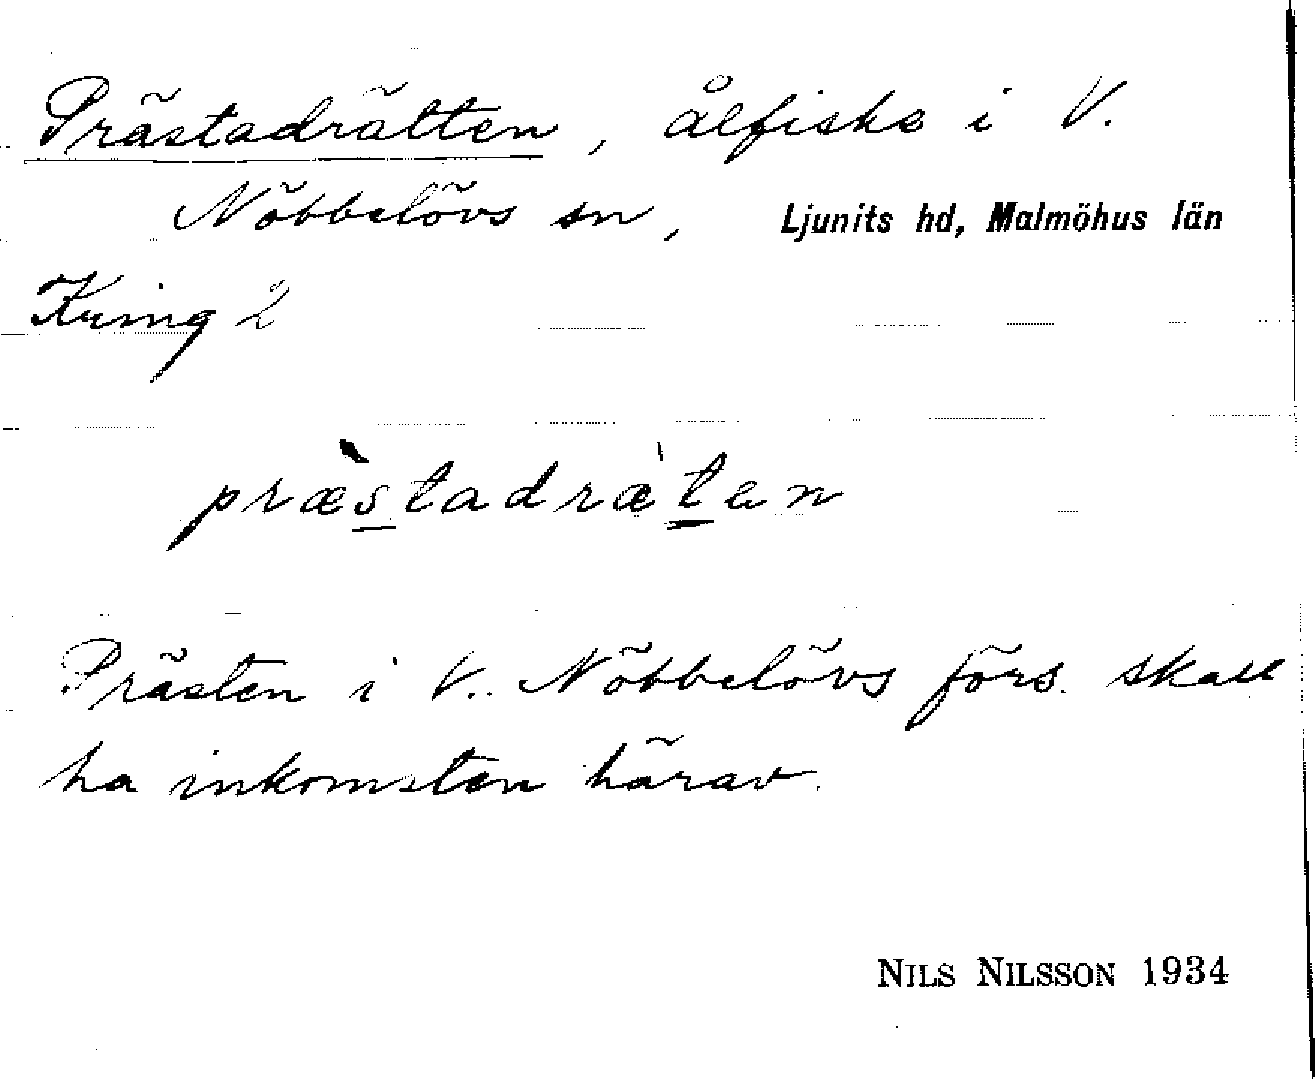 Prästadrätten, ålfiske i V.
Nöbbelövs sn, Ljunits hd, Malmöhus län
Kring 2
præ̀stadræ̀ten
Prästen i V. Nöbbelövs förs. skall
ha inkomsten härav.
NILS NILSSON 1934